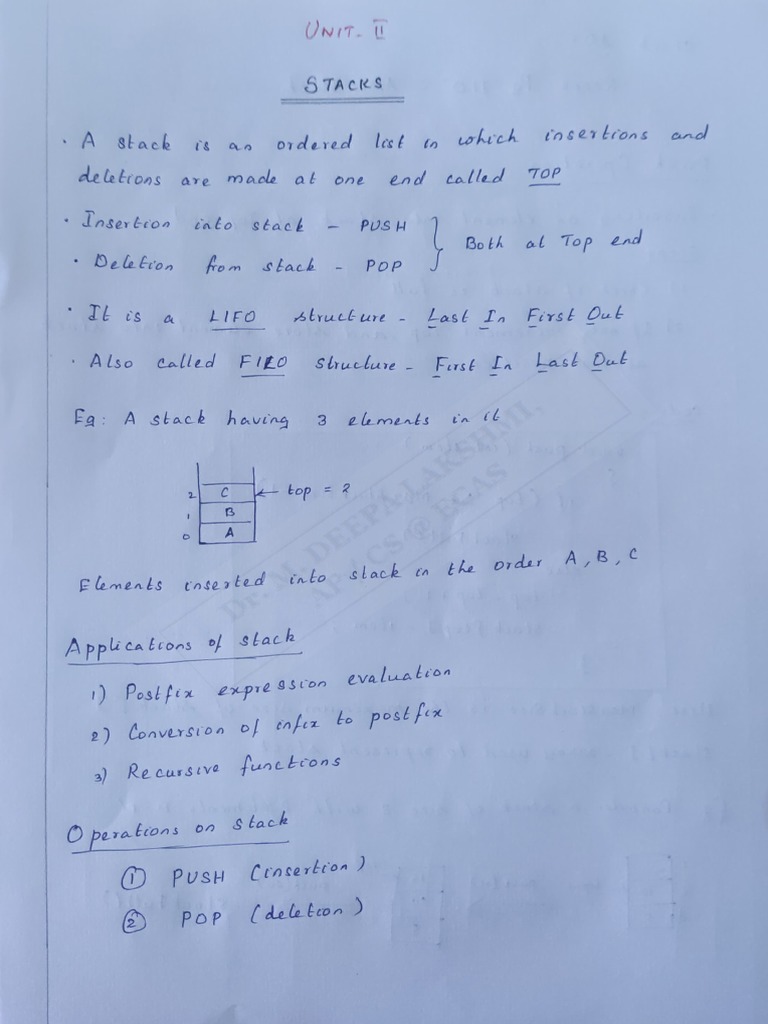 UNIT-II
STACKS
· A stack is an ordered list in which insertions and
deletions are made at one end called TOP
· Insertion into stack - PUSH } Both at Top end
· Deletion from stack - POP
· It is a LIFO structure - Last In First Out
· Also called FILO structure - First In Last Out
Eg: A stack having 3 elements in it
2 C ← top = 2
1 B
0 A
Dr. M. DEEPA LAKSHMI,
AP/CS @ EGAS
Elements inserted into stack in the order A, B, C
Applications of stack
1) Postfix expression evaluation
2) Conversion of infix to postfix
3) Recursive functions
Operations on stack
① PUSH (insertion)
② POP (deletion)